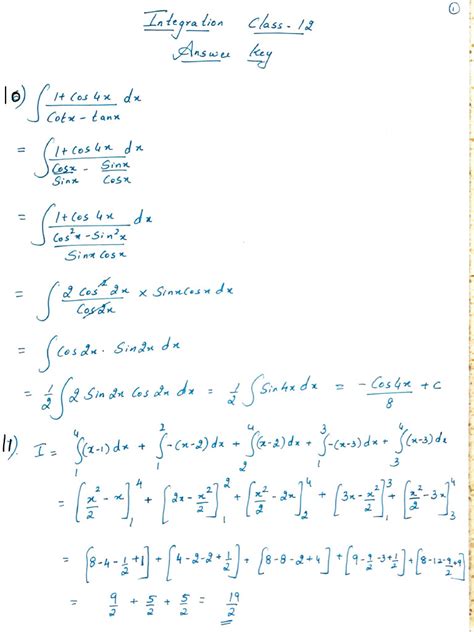 ①
Integration Class-12
Answer key
10) ∫ (1 + cos4x)/(Cotx - tanx) dx
= ∫ (1 + cos4x)/(Cosx/Sinx - Sinx/Cosx) dx
= ∫ (1 + cos4x)/((Cos²x - Sin²x)/(Sinx cosx)) dx
= ∫ (2 Cos²2x)/(Cos2x) × Sinx Cosx dx
= ∫ Cos2x · Sin2x dx
= 1/2 ∫ 2 Sin2x Cos2x dx = 1/2 ∫ Sin4x dx = -Cos4x/8 + c
11) I = ∫₁⁴ (x-1) dx + ∫₁² -(x-2) dx + ∫₂⁴ (x-2) dx + ∫₁³ -(x-3) dx + ∫₃⁴ (x-3) dx
= [x²/2 - x]₁⁴ + [2x - x²/2]₁² + [x²/2 - 2x]₂⁴ + [3x - x²/2]₁³ + [x²/2 - 3x]₃⁴
= [8-4-1/2+1] + [4-2-2+1/2] + [8-8-2+4] + [9-9/2-3+1/2] + [8-12-9/2+9]
= 9/2 + 5/2 + 5/2 = 19/2